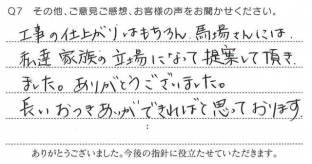 Q7 その他、ご意見ご感想、お客様の声をお聞かせください。
工事の仕上がりはもちろん 馬場さんには、
私達家族の立場になって提案して頂き
ました。ありがとうございました。
長いおつきあいができればと思っております。
ありがとうございました。今後の指針に役立たせていただきます。